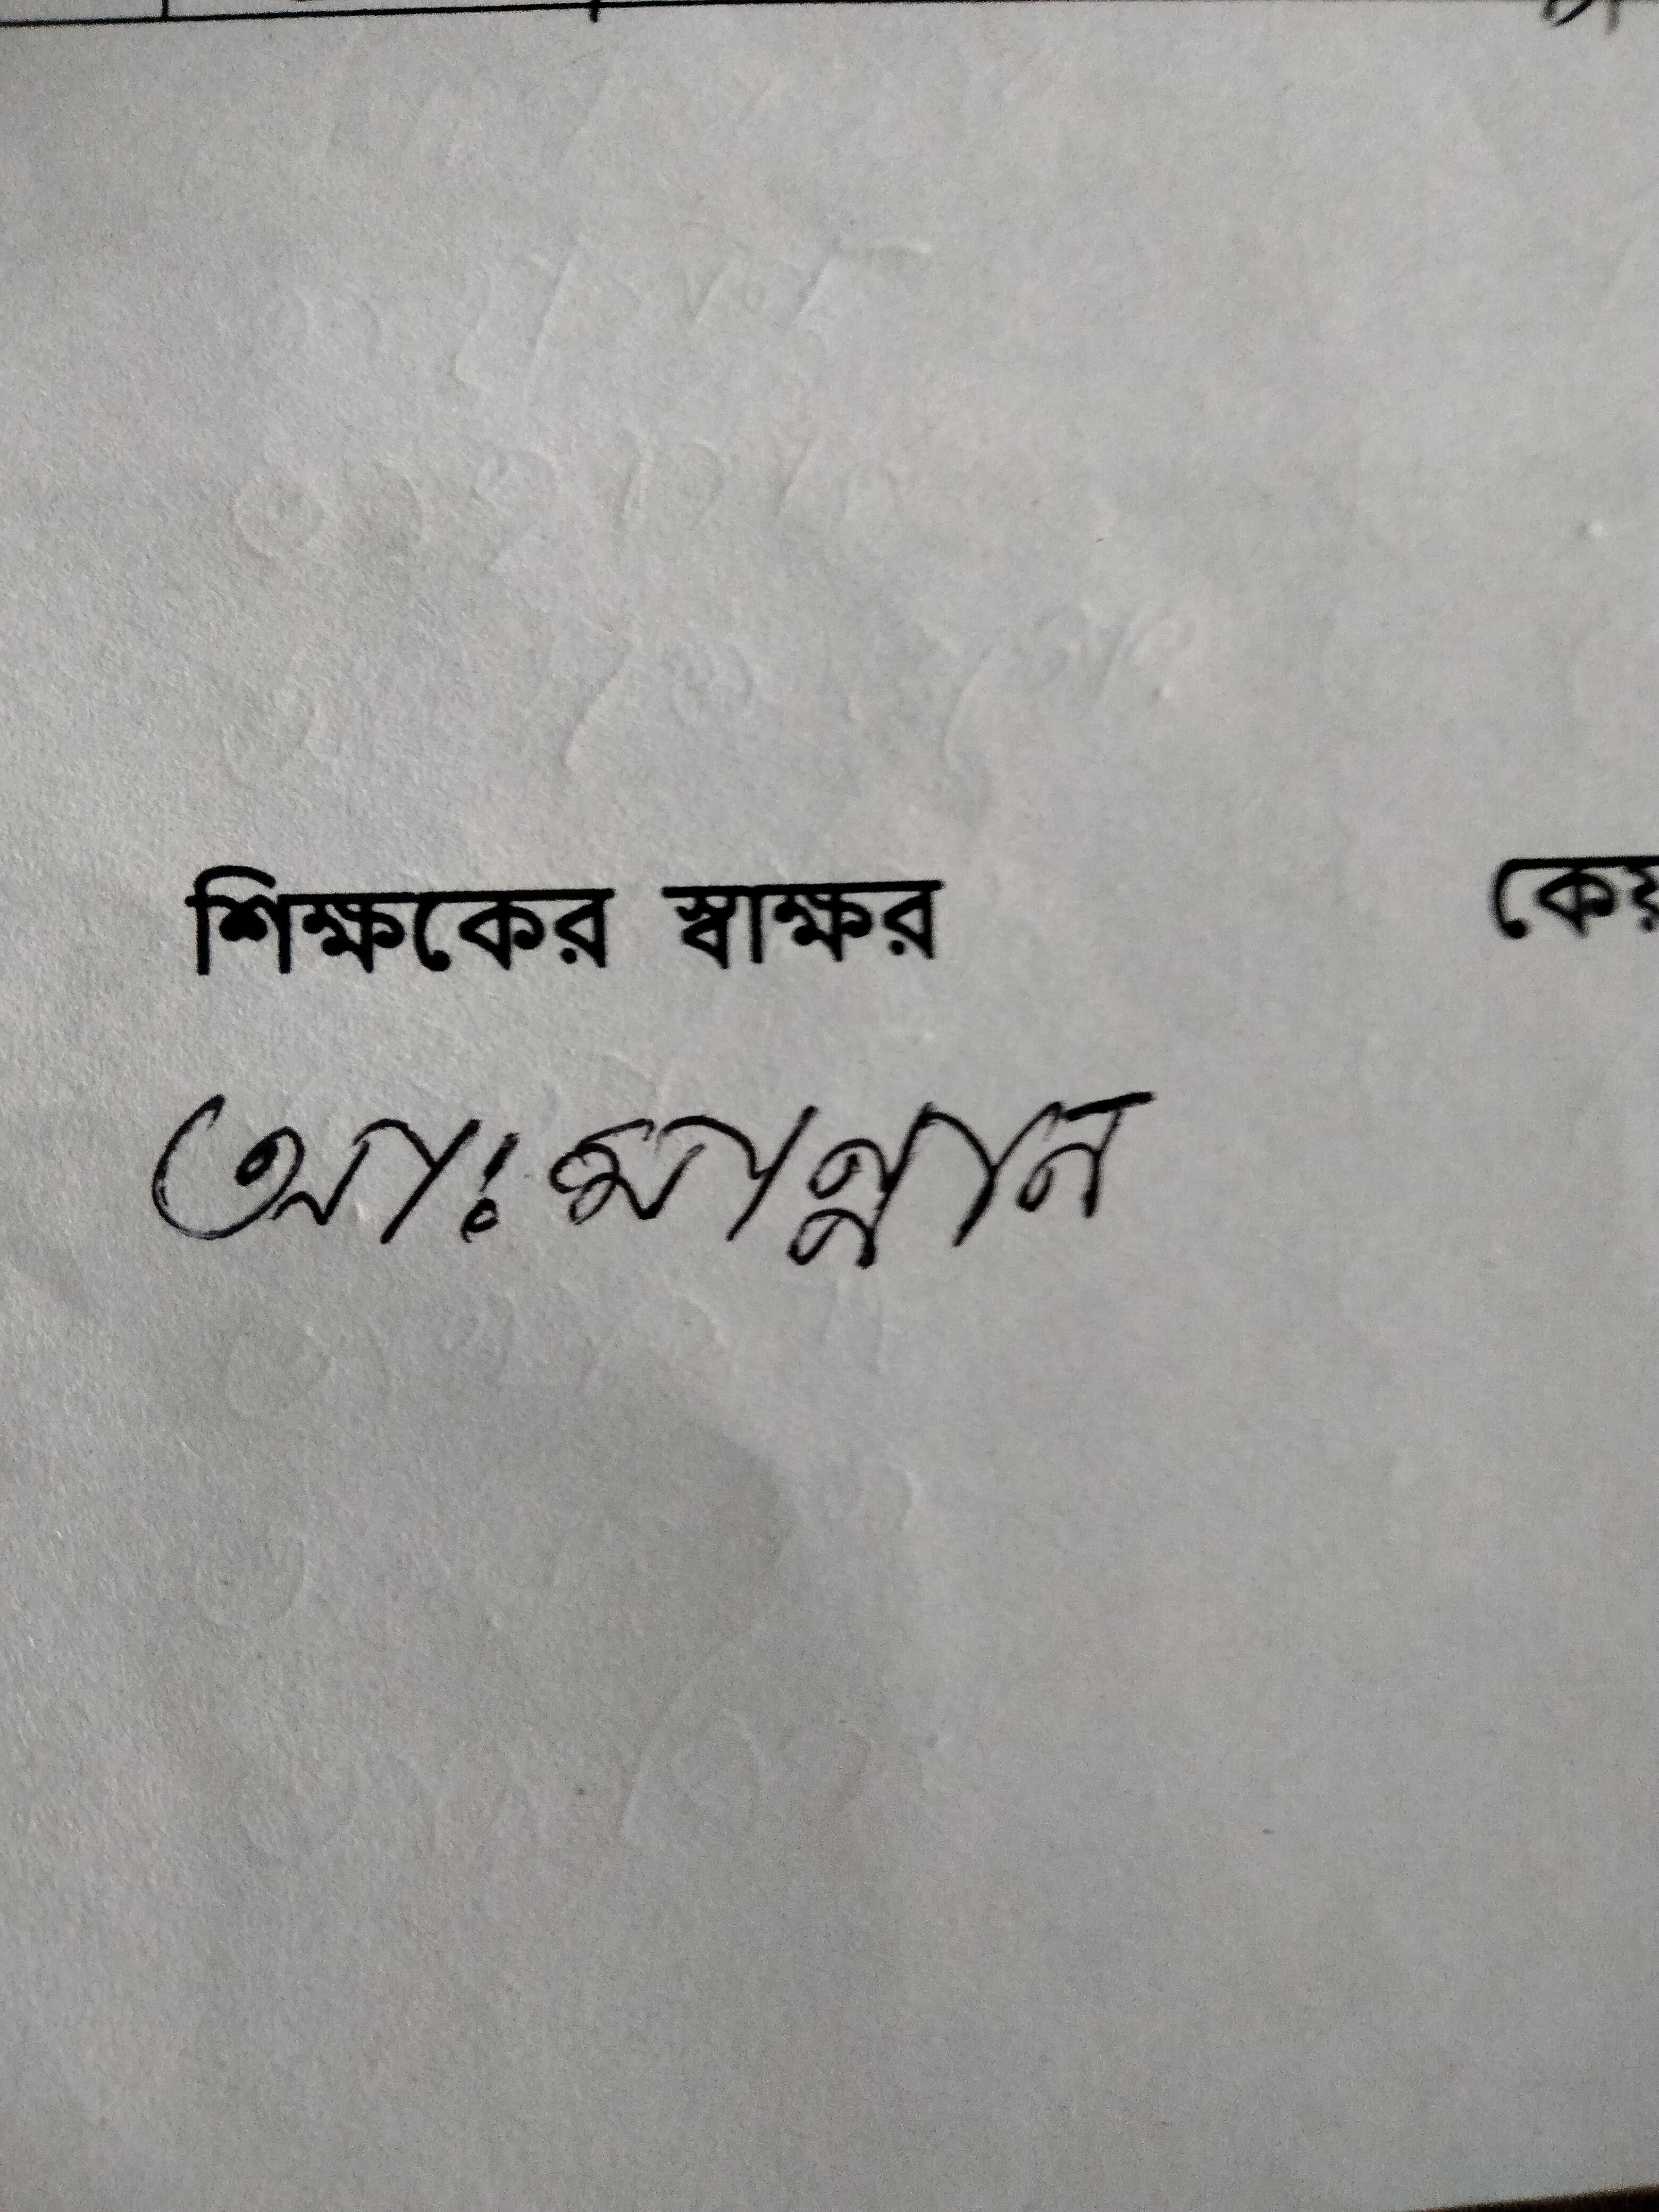 শিক্ষকের স্বাক্ষর
আঃ মান্নান